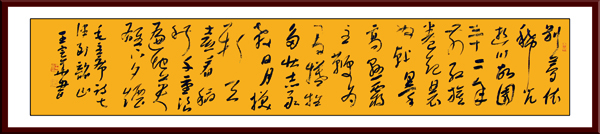 别梦依
稀咒
逝川故園
三十二年
前红旗
卷起農
奴戟黑手
高悬霸
主鞭为
有犧牲
多壮志敢
教日月换
新天
喜看稻
菽千重浪
遍地英
雄下夕烟
毛主席诗七
律到韶山
王書